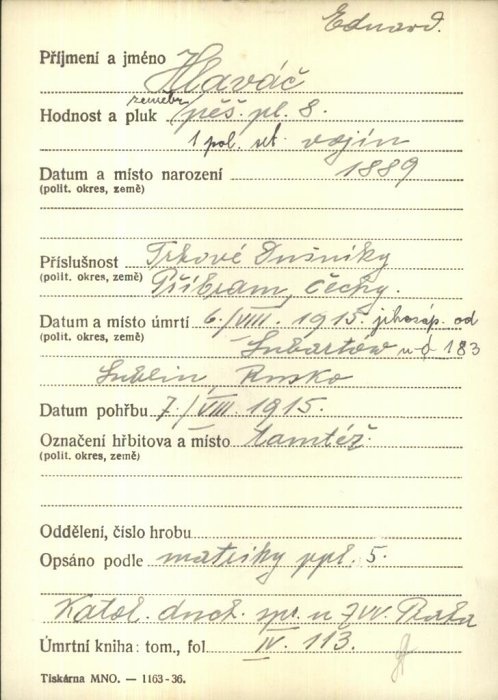 Eduard.
Příjmení a jméno Hlaváč
Hodnost a pluk zeměbr. pěš. pl. 8.
1 pol. set. vojín
Datum a místo narození 1889
(polit. okres, země)
Příslušnost Trhové Dušníky
(polit. okres, země) Příbram, Čechy.
Datum a místo úmrtí 6./VIII. 1915. jihozáp. od
(polit. okres, země) Lubartów 183
Lublin, Rusko
Datum pohřbu 7./VIII. 1915.
Označení hřbitova a místo tamtéž.
(polit. okres, země)
Oddělení, číslo hrobu
Opsáno podle matriky ppl. 5.
Katol. duch. spr. u ZVV. Praha
Úmrtní kniha: tom., fol IV. 113.
Tiskárna MNO. — 1163-36.